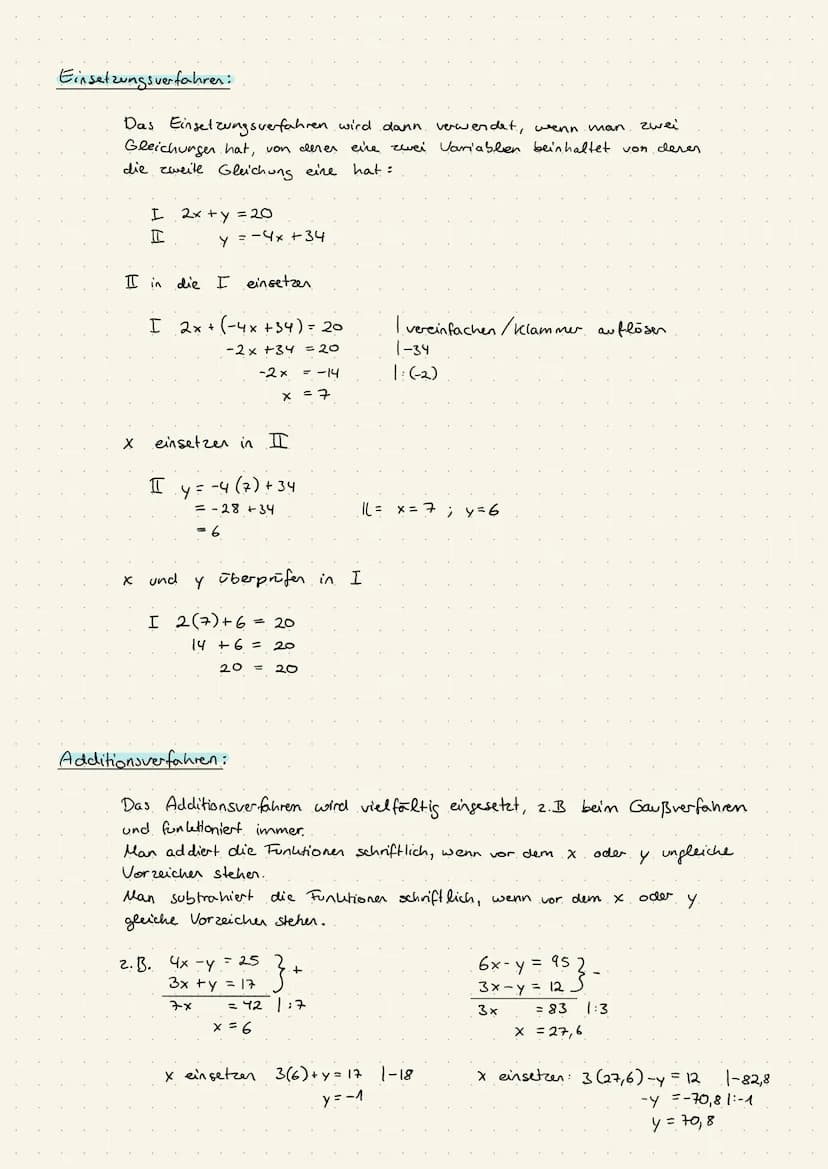 Einsetzungsverfahren:
Das Einsetzungsverfahren wird dann verwendet, wenn man zwei
Gleichungen hat, von denen eine zwei Variablen beinhaltet von denen
die zweite Gleichung eine hat:
I 2x + y = 20
II y = -4x + 34
II in die I einsetzen
I 2x + (-4x + 34) = 20 | vereinfachen / Klammer auflösen
-2x + 34 = 20 | -34
-2x = -14 | : (-2)
x = 7
x einsetzen in II
II y = -4 (7) + 34
= -28 + 34 𝕃 = x = 7 ; y = 6
= 6
x und y überprüfen in I
I 2(7) + 6 = 20
14 + 6 = 20
20 = 20
Additionsverfahren:
Das Additionsverfahren wird vielfältig eingesetzt, z.B beim Gaußverfahren
und funktioniert immer.
Man addiert die Funktionen schriftlich, wenn vor dem x oder y ungleiche
Vorzeichen stehen.
Man subtrahiert die Funktionen schriftlich, wenn vor dem x oder y
gleiche Vorzeichen stehen.
z.B. 4x - y = 25 } +
3x + y = 17
7x = 42 | : 7
x = 6
x einsetzen 3(6) + y = 17 | -18
y = -1
6x - y = 95 } -
3x - y = 12
3x = 83 | : 3
x = 27,6
x einsetzen: 3 (27,6) - y = 12 | -82,8
-y = -70,8 | : -1
y = 70,8